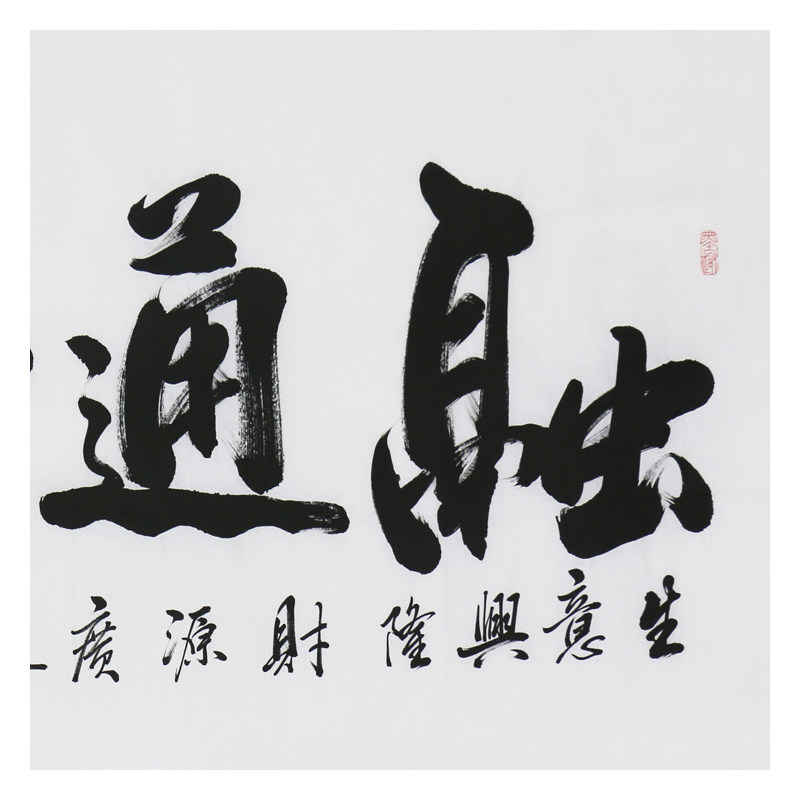 融通
生意興隆財源廣